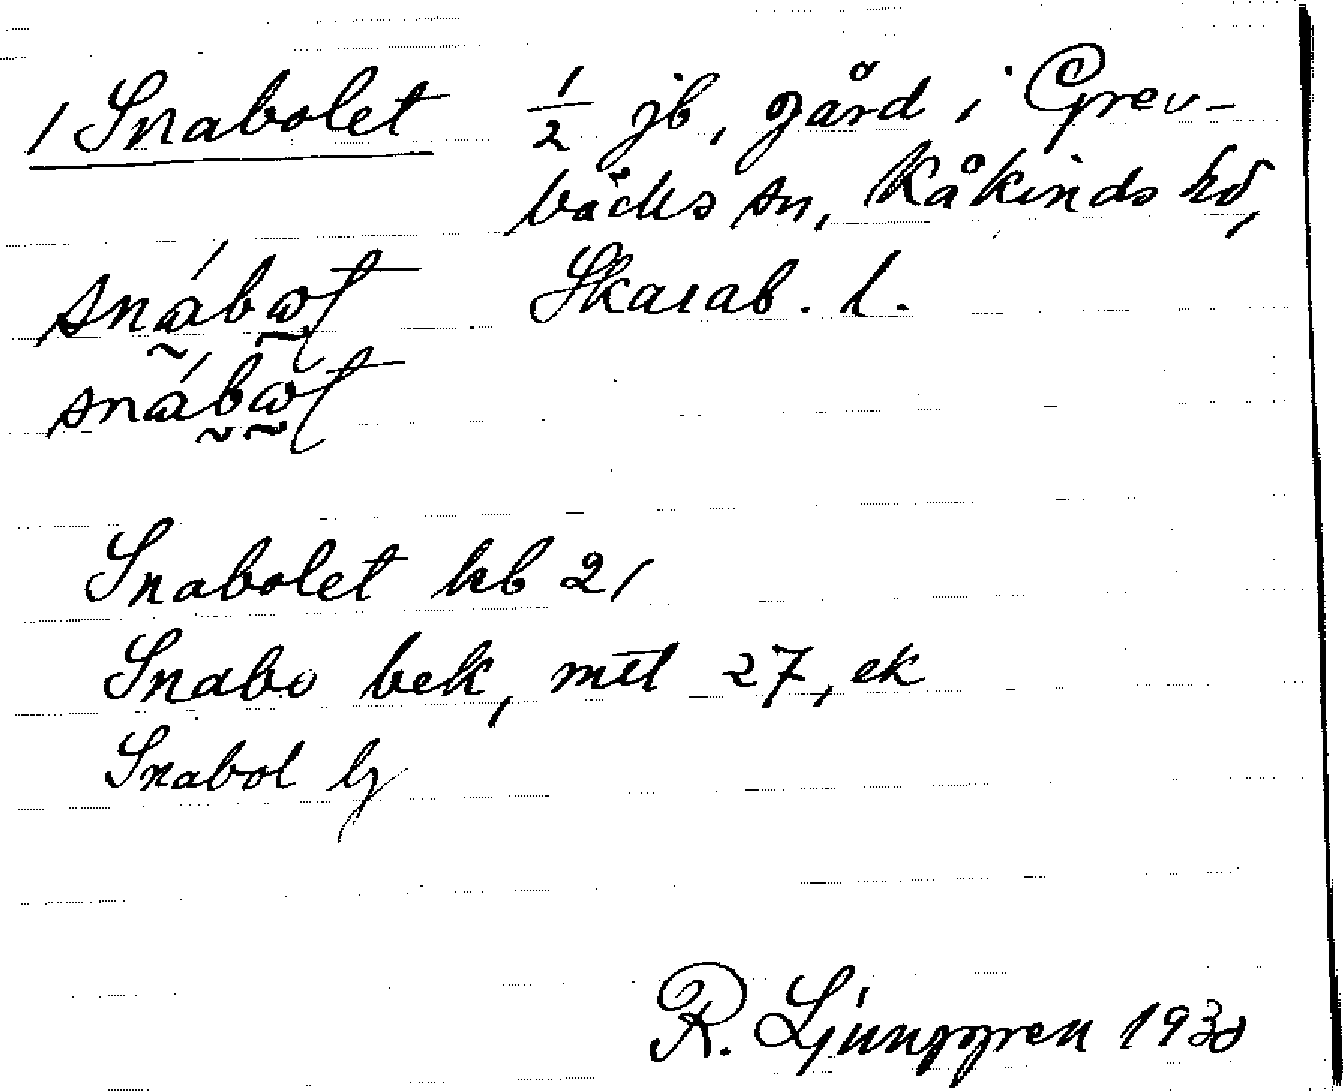 1 Snabolet 1/2 jb, gård i Grev-
bäcks sn, Kåkinds hd,
Skarab. l.
Snabolet kb 21
Snabo bek, mtl 27, ek
Snabol lj
R. Ljunggren 1930